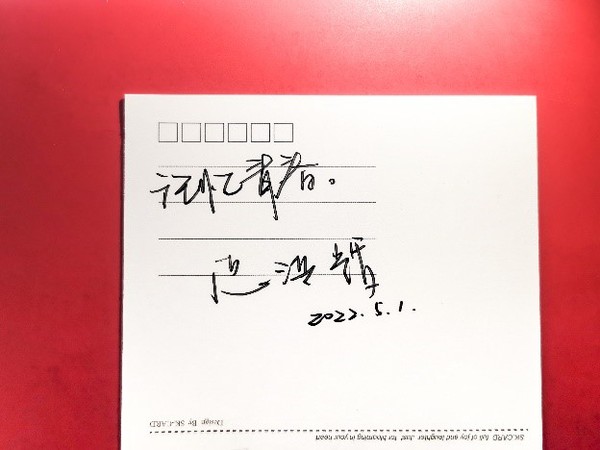 记忆青春。
2022.5.1.
Design By SK-CARD
SK-CARD full of joy and laughter. Just for blooming in your heart